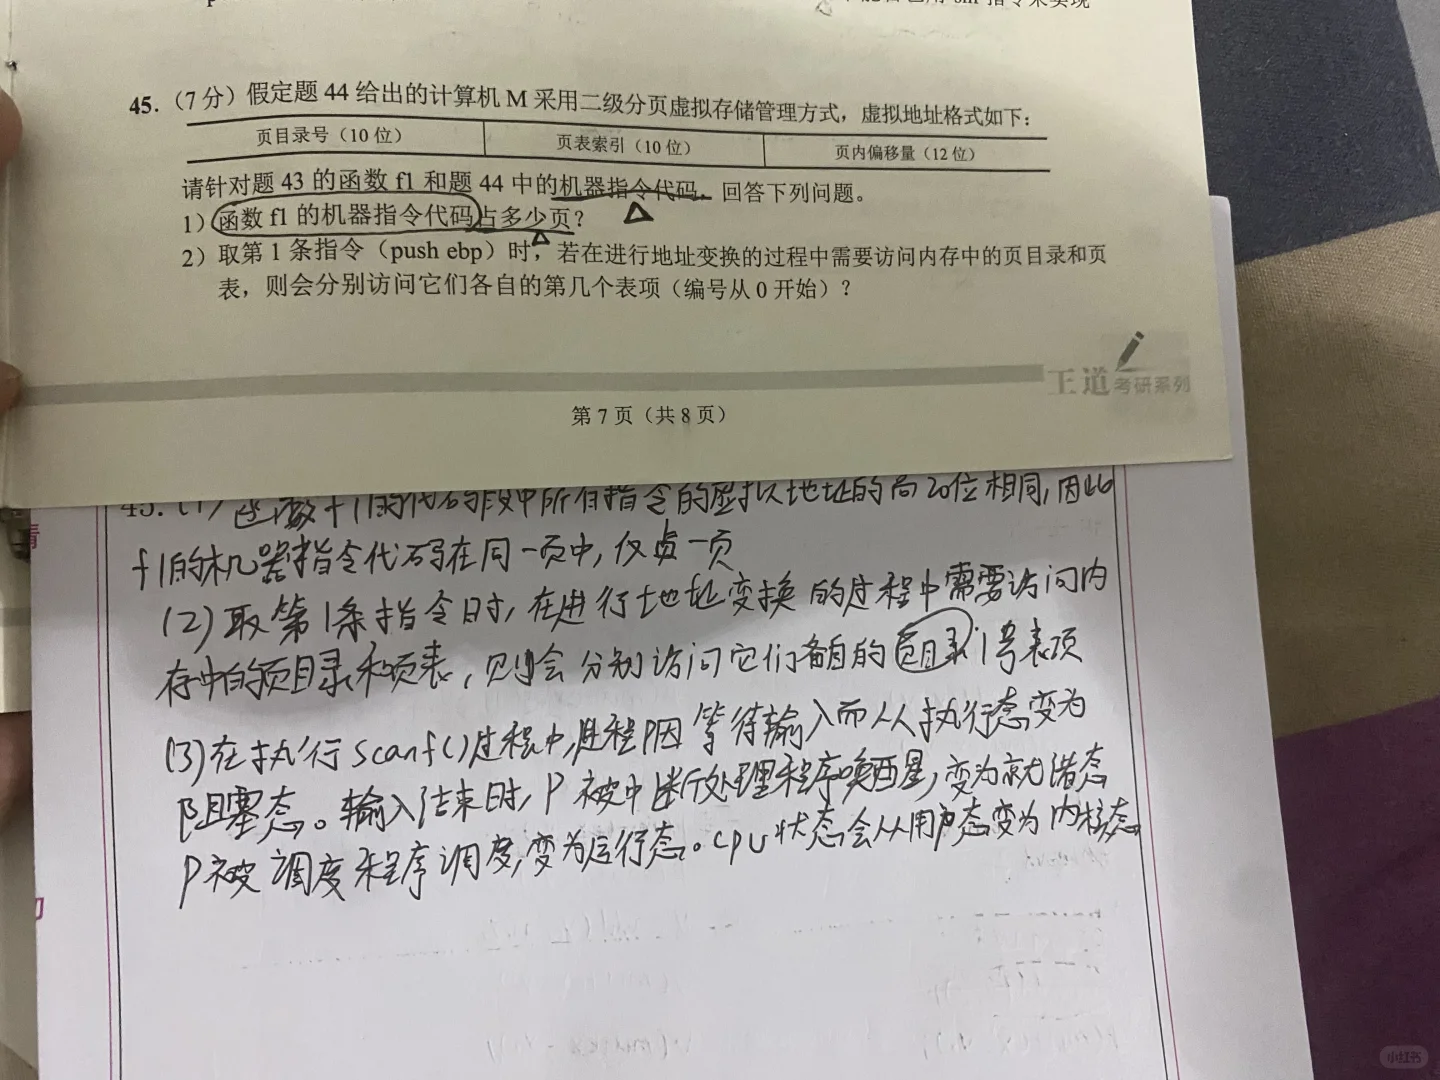 指令来实现
45.（7分）假定题 44 给出的计算机 M 采用二级分页虚拟存储管理方式，虚拟地址格式如下：
页目录号（10 位） 页表索引（10 位） 页内偏移量（12 位）
请针对题 43 的函数 f1 和题 44 中的机器指令代码，回答下列问题。
1）函数 f1 的机器指令代码占多少页？
2）取第 1 条指令（push ebp）时，若在进行地址变换的过程中需要访问内存中的页目录和页
表，则会分别访问它们各自的第几个表项（编号从 0 开始）？
王道考研系列
第 7 页（共 8 页）
45.(1) 函数f1的代码段中所有指令的虚拟地址的高20位相同,因此
f1的机器指令代码在同一页中,仅占一页
(2)取第1条指令时,在进行地址变换的过程中需要访问内
存中的页目录和页表,则会分别访问它们各自的 目录 1号表项
(3)在执行scanf()过程中,进程P因等待输入而从执行态变为
阻塞态。输入结束时,P被中断处理程序唤醒,变为就绪态
P被调度程序调度,变为运行态。CPU状态会从用户态变为内核态
小红书